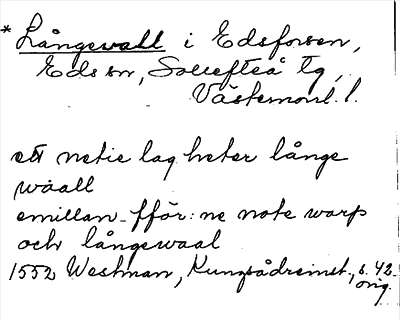 * Långewall i Edsforsen,
Eds sn, Sollefteå tg,
Västernorrl. l.
ett netie lag heter långe
wåall
emillan fför: ne note warp
och långewaal
1552 Westman, Kungsådreinst., s. 42
orig.